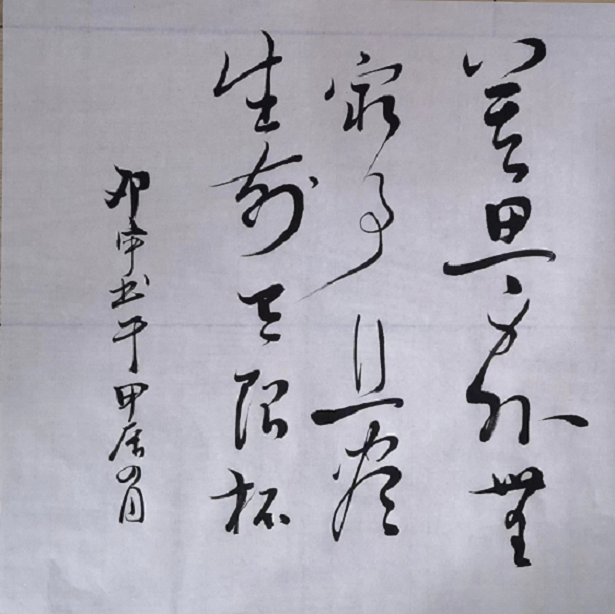 莫思身外無
窮事且盡
生前有限杯
书于甲辰四月